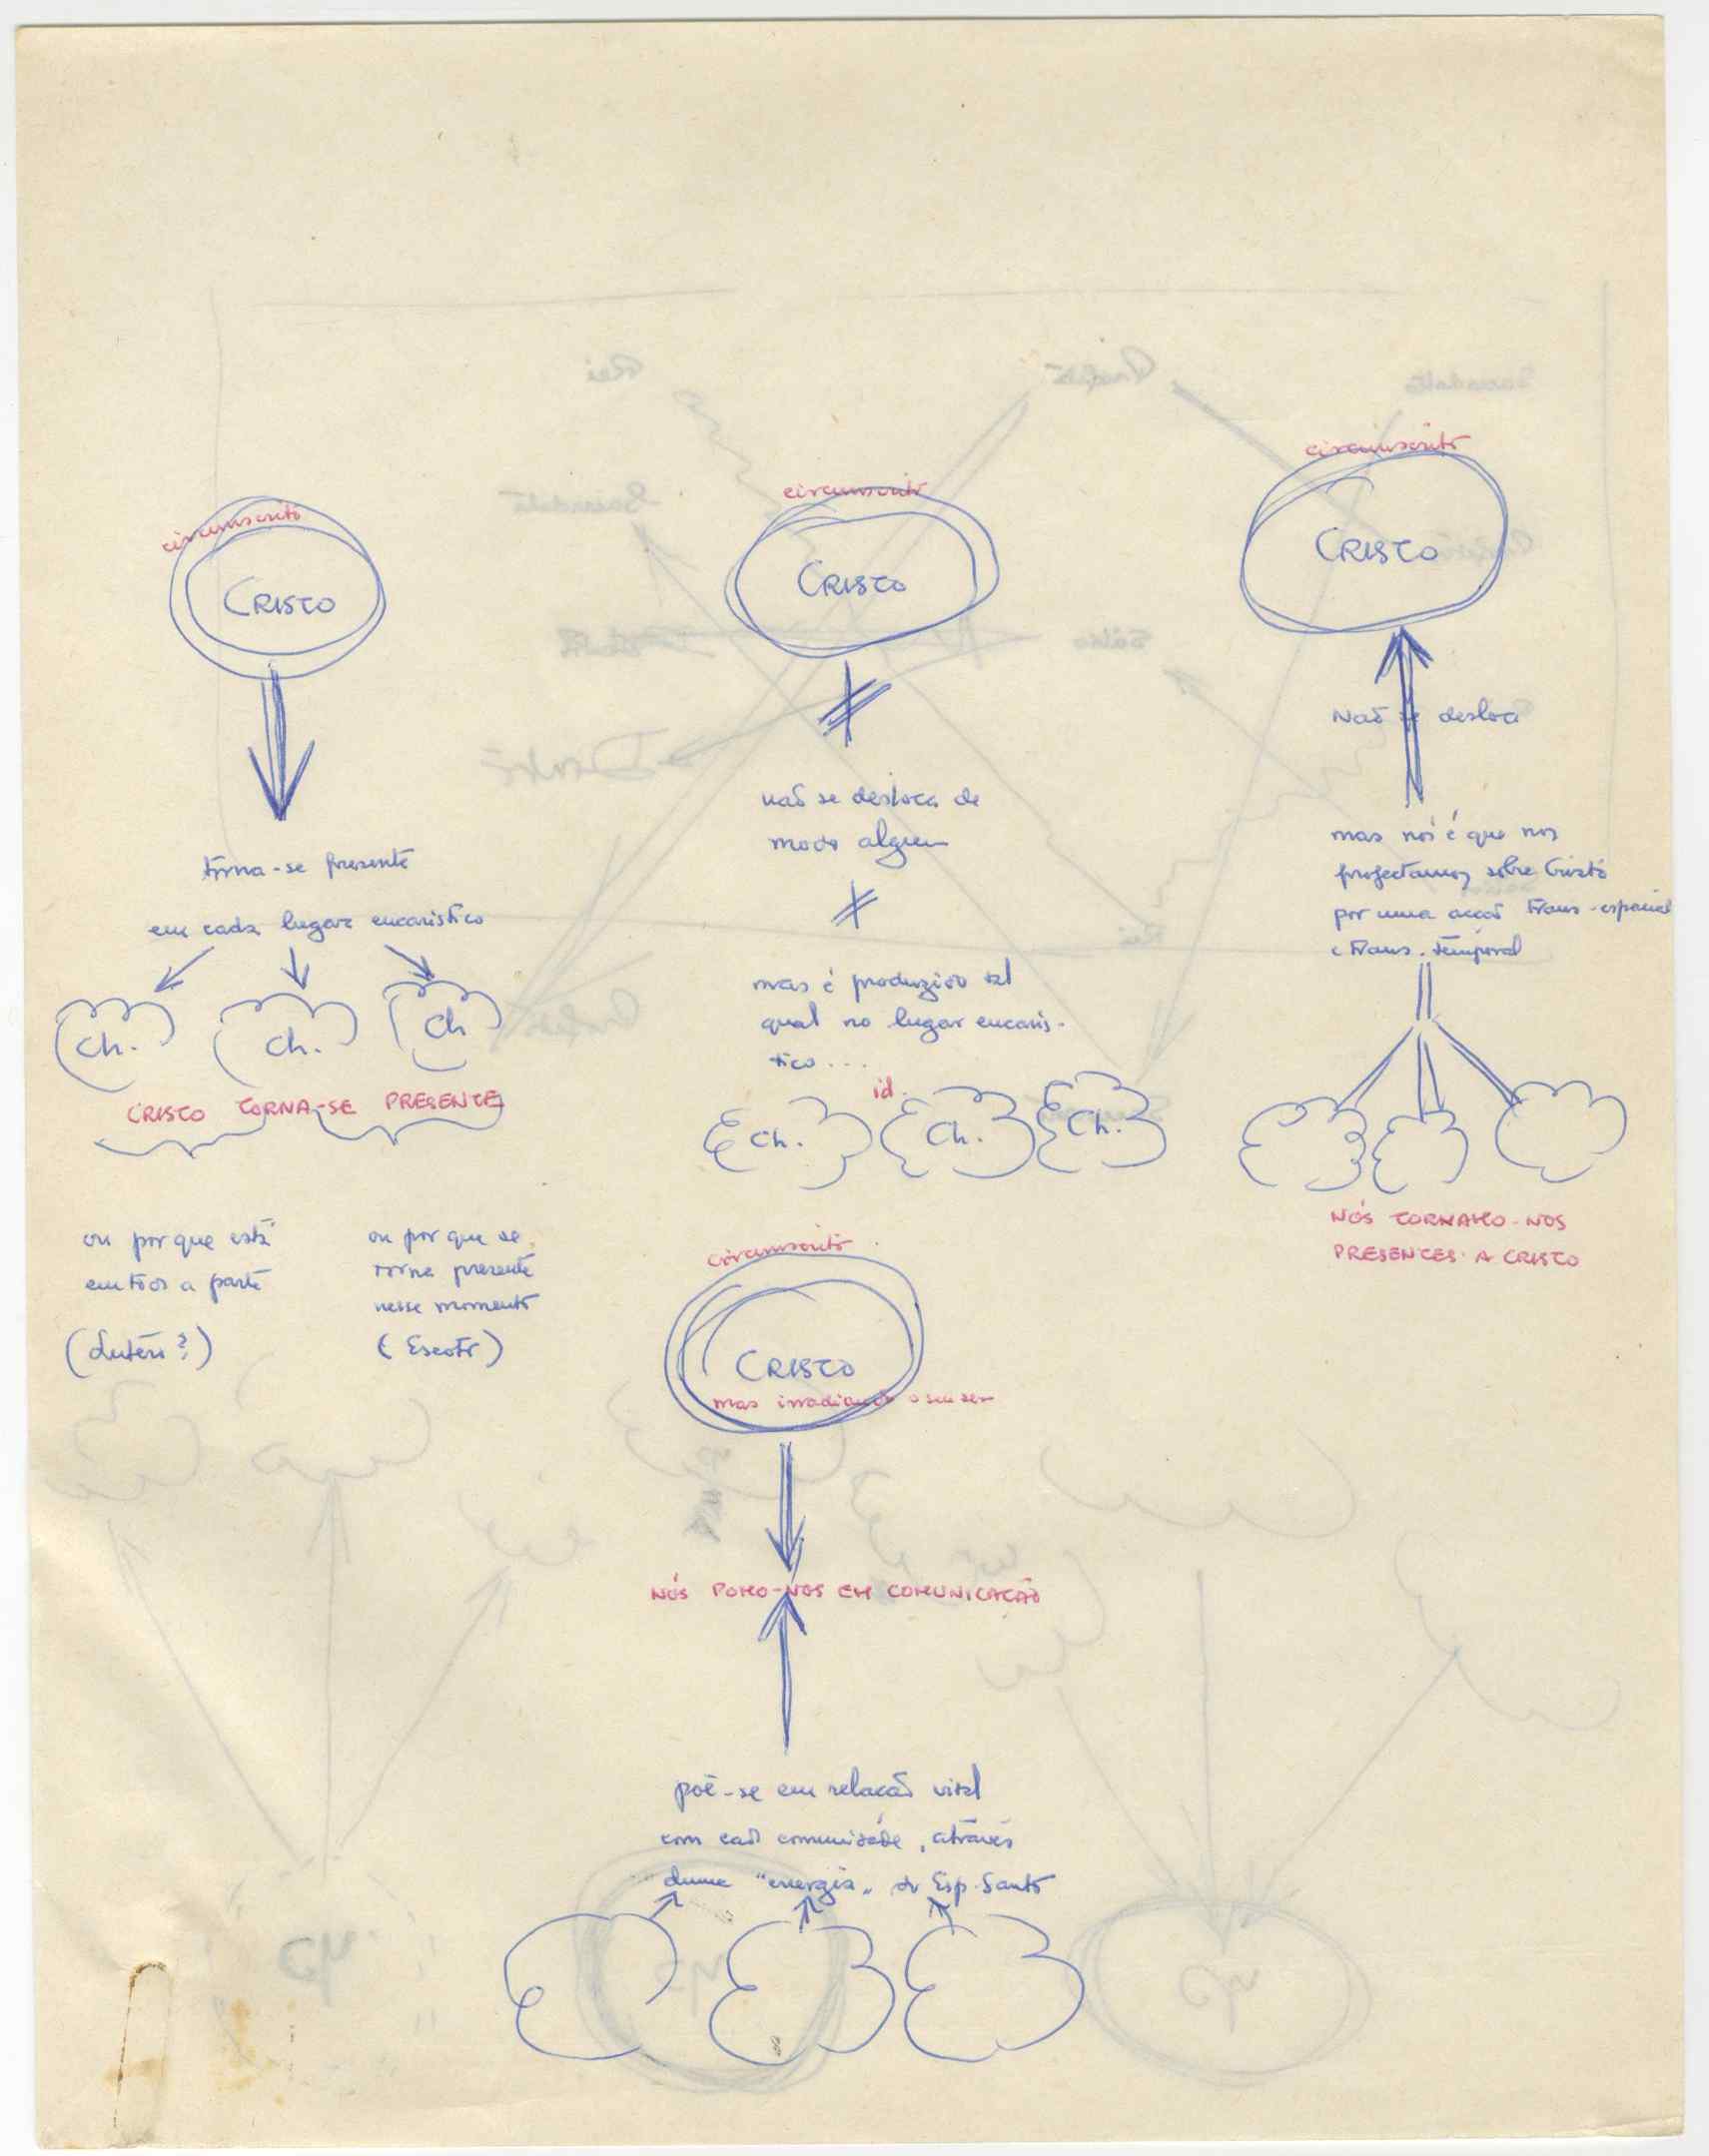 circunscrito
CRISTO
torna-se presente
em cada lugar eucarístico
Ch.
Ch.
Ch
CRISTO TORNA-SE PRESENTE
ou porque está
em toda a parte
(Lutero?)
ou porque se
torna presente
nesse momento
(Escoto)
circunscrito
CRISTO
não se desloca de
modo algum
mas é produzido tal
qual no lugar eucarís-
tico...
id.
Ch.
Ch.
Ch.
circunscrito
CRISTO
Não se desloca
mas nós é que nos
projectamos sobre Cristo
por uma acção trans-espacial
e trans-temporal
NÓS TORNAMO-NOS
PRESENTES A CRISTO
circunscrito
CRISTO
mas irradiando o seu ser
NÓS POMO-NOS EM COMUNICAÇÃO
põe-se em relação vital
com cada comunidade, através
duma "energia" do Esp. Santo